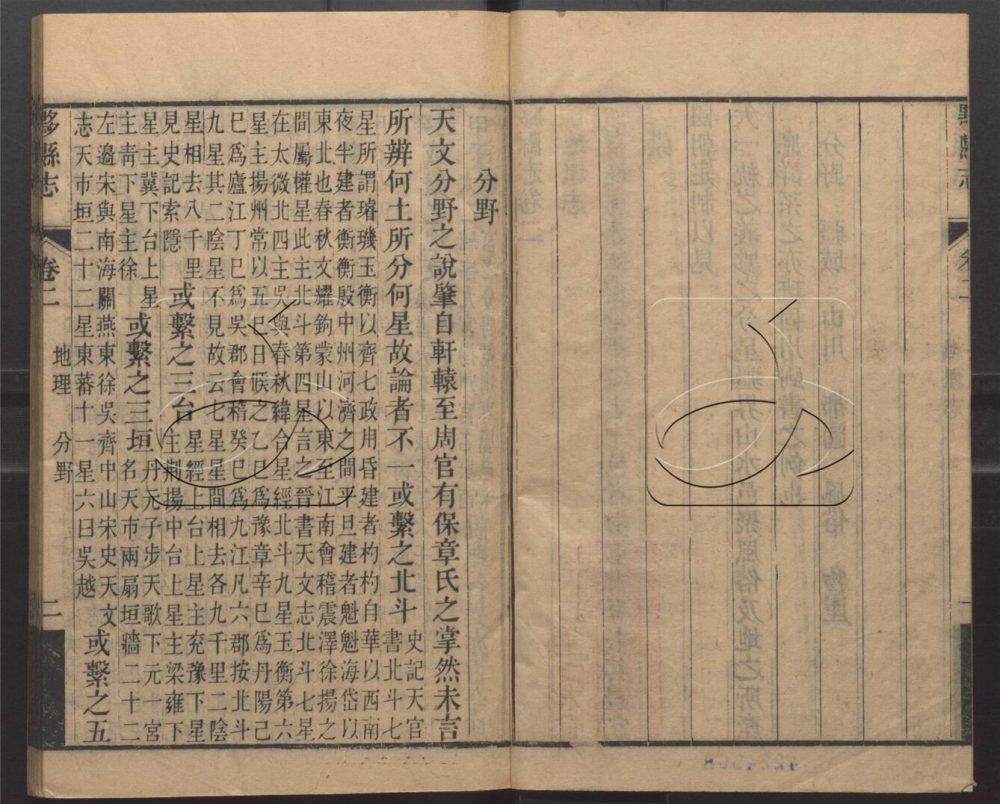 黟縣志
卷二
一
分野
天文分野之說肇自軒轅至周官有保章氏之掌然未言
所辨何土所分何星故論者不一或繫之北斗史記天官
書北斗七
星所謂璿璣玉衡以齊七政用昏建者杓杓自華以西南
夜半建者衡衡殷中州河濟之間平旦建者魁魁海岱以
東北也春秋文耀鉤蒙山以東至江南會稽震澤徐揚之
間屬權星此主北斗第四星言之晉書天文志北斗七星
在太微北四主吳與春秋緯合星經北斗九星玉衡第六
星主揚州常以五巳日候之乙巳爲豫章辛巳爲丹陽己
巳爲廬江丁巳爲吳郡會稽癸巳爲九江凡六郡按北斗
九星其二陰星不見故云七星星間相去各九千里二陰
星相去八千里
見史記索隱
或繫之三台
星經上台上星主兗豫下星
主荊揚中台上星主梁雍下
星主冀下台上星
主青下星主徐
或繫之三垣
丹元子步天歌下元一宮
名天市兩扇垣牆二十二
左邊宋與南海關燕東徐吳齊中山宋史天文
志天市垣二十二星東蕃十一星六曰吳越
或繫之五
黟縣志
卷二
地理
分野
二